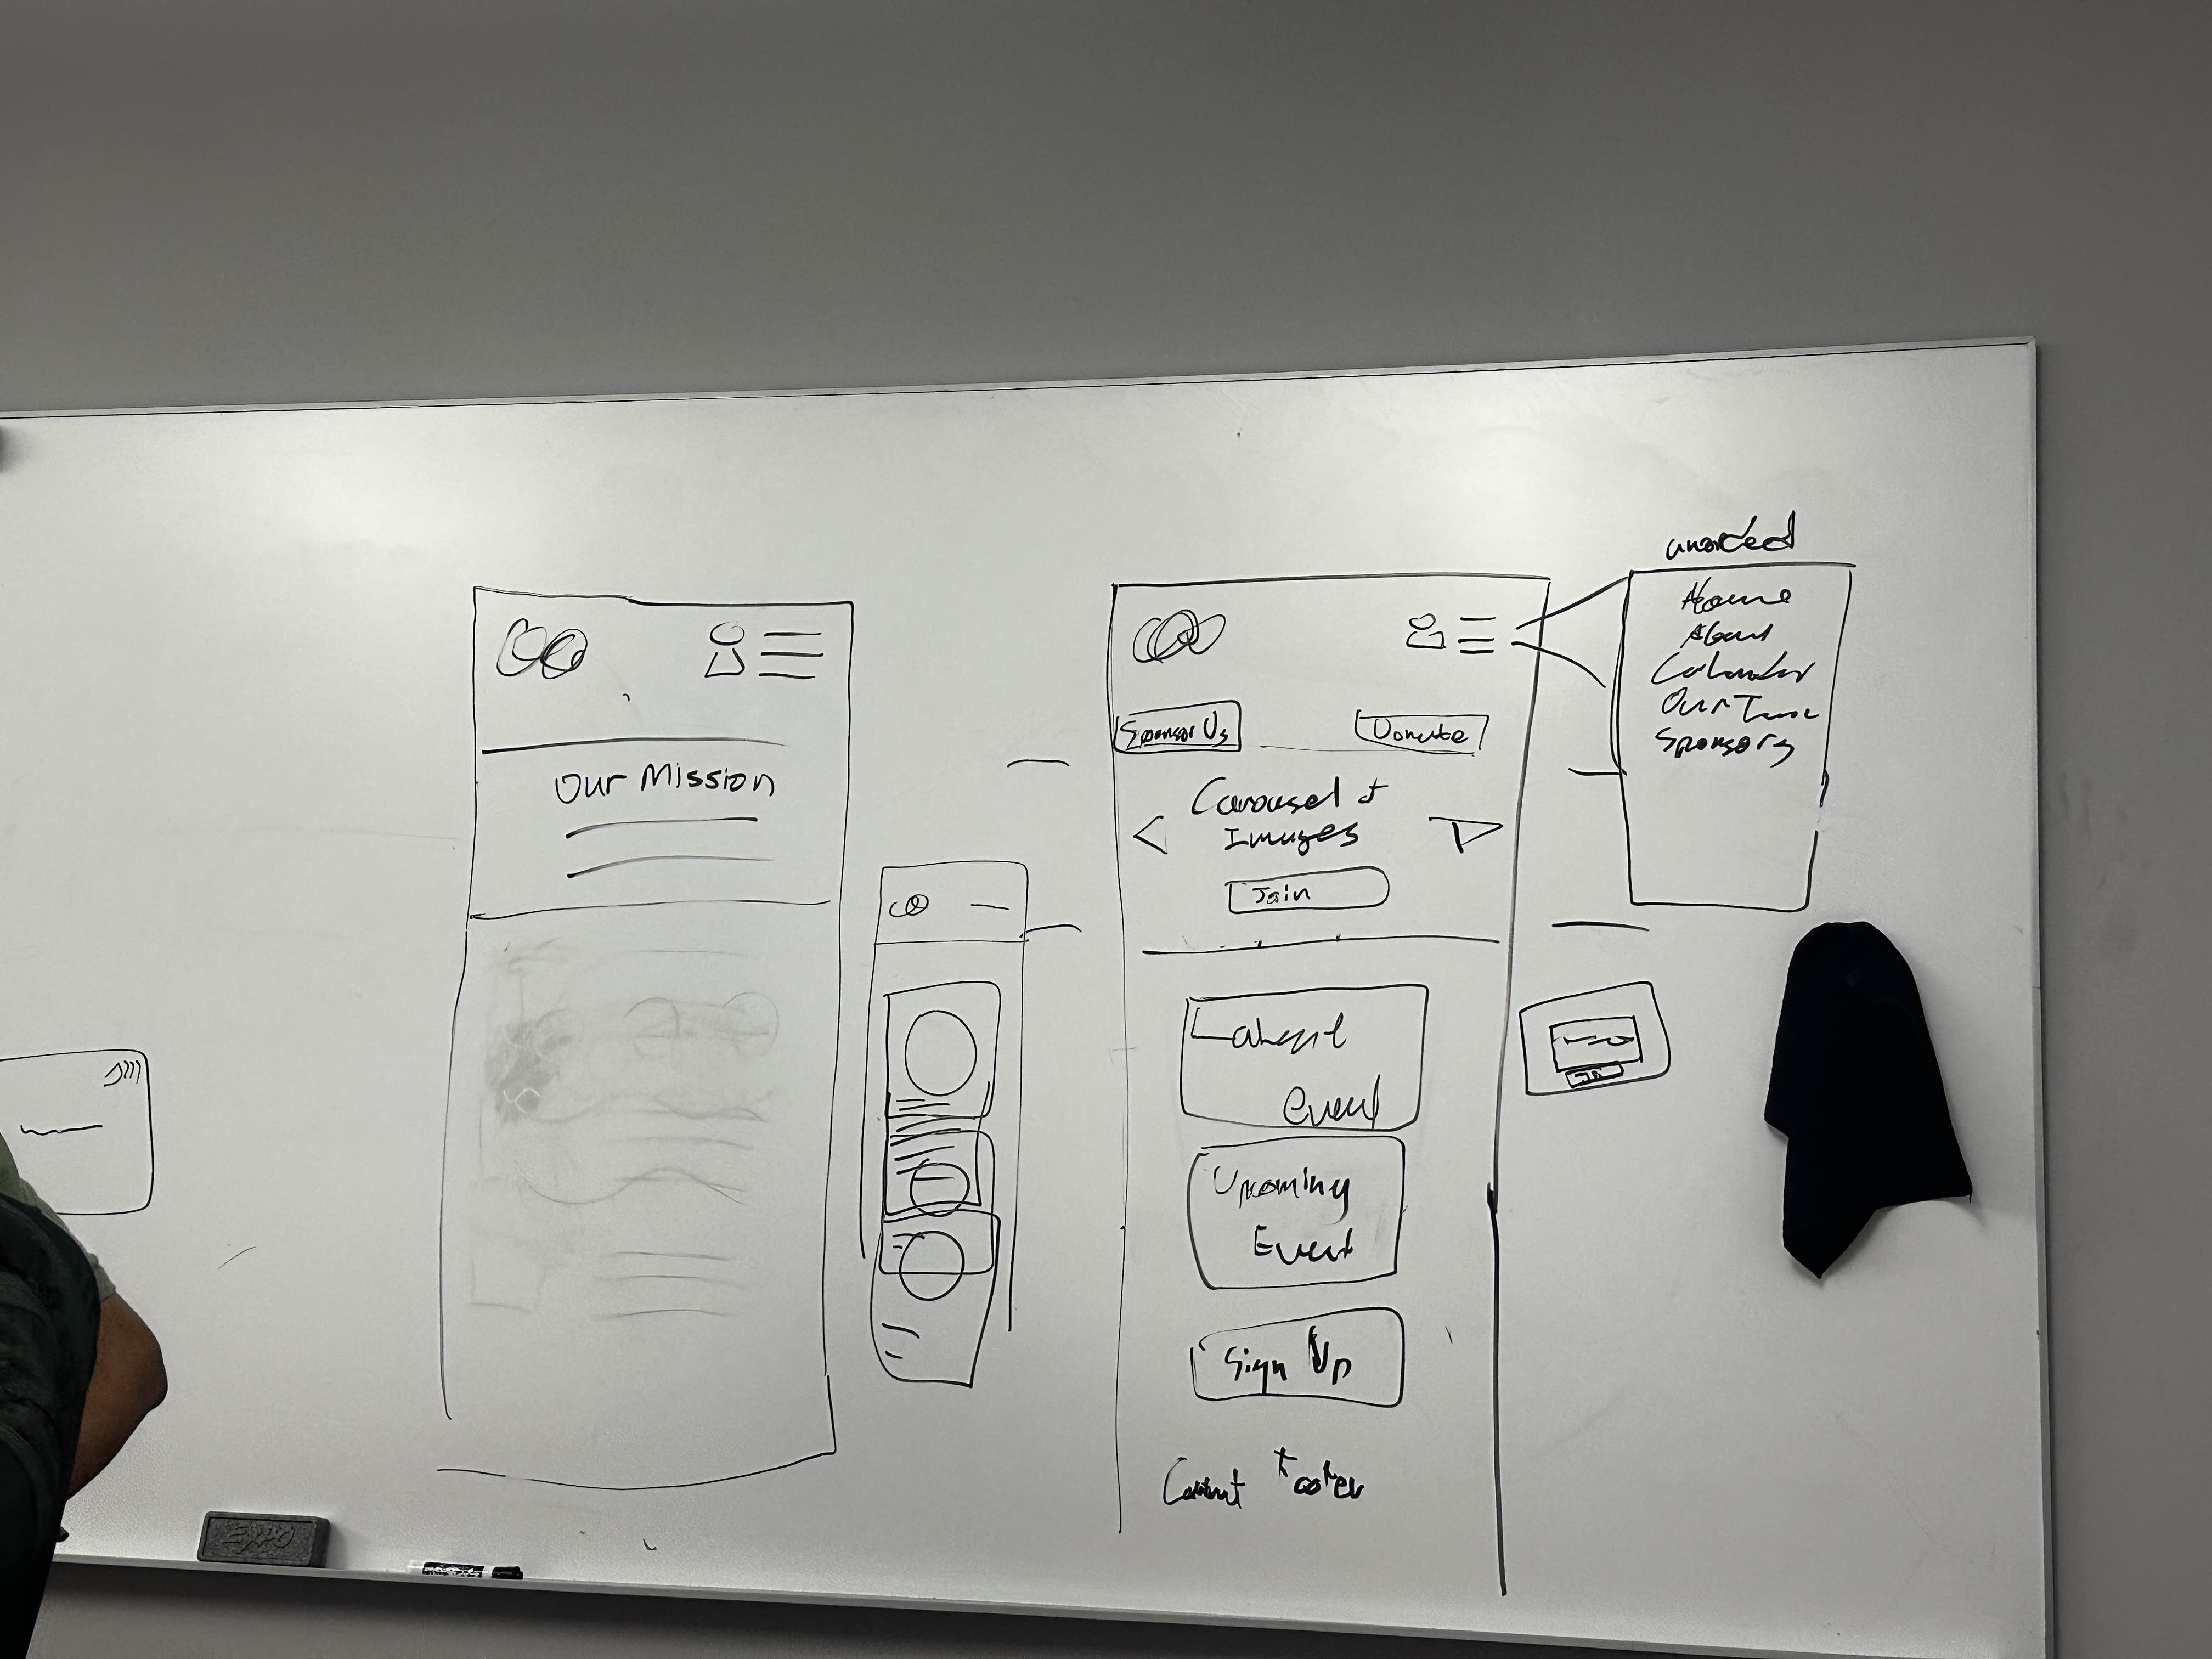 Our Mission
Sponsor Us
Donate
Carousel of
Images
Join
Latest
Event
Upcoming
Event
Sign Up
Footer
Home
About
Calendar
Our
Sponsors
EXPO